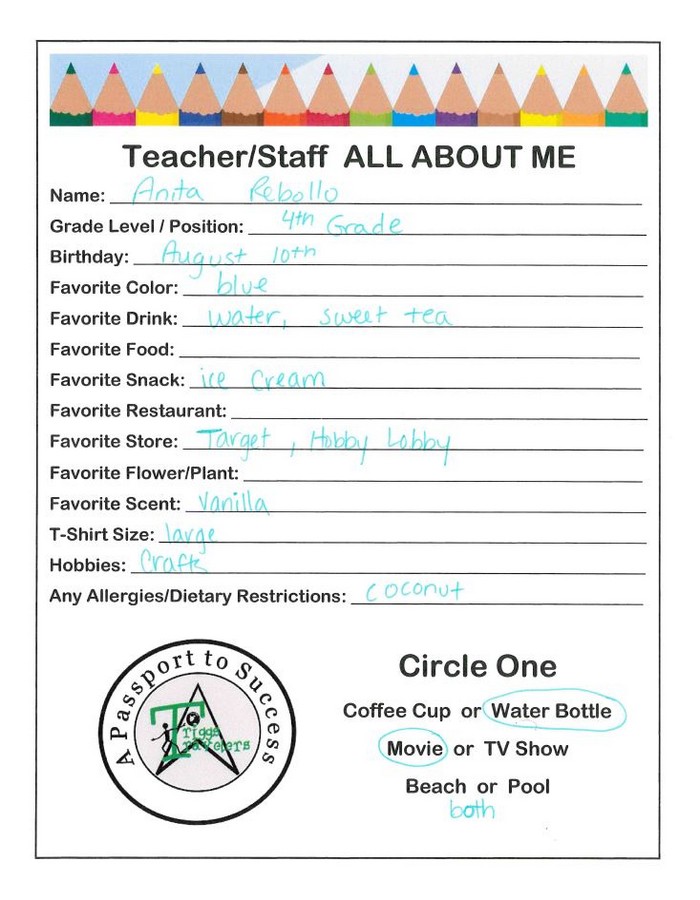 Teacher/Staff ALL ABOUT ME
Name: Anita Rebollo
Grade Level / Position: 4th Grade
Birthday: August 10th
Favorite Color: blue
Favorite Drink: water, sweet tea
Favorite Food:
Favorite Snack: ice cream
Favorite Restaurant:
Favorite Store: Target, Hobby Lobby
Favorite Flower/Plant:
Favorite Scent: Vanilla
T-Shirt Size: large
Hobbies: Crafts
Any Allergies/Dietary Restrictions: coconut
A Passport to Success
Triggs
Travelers
Circle One
Coffee Cup or Water Bottle
Movie or TV Show
Beach or Pool
both